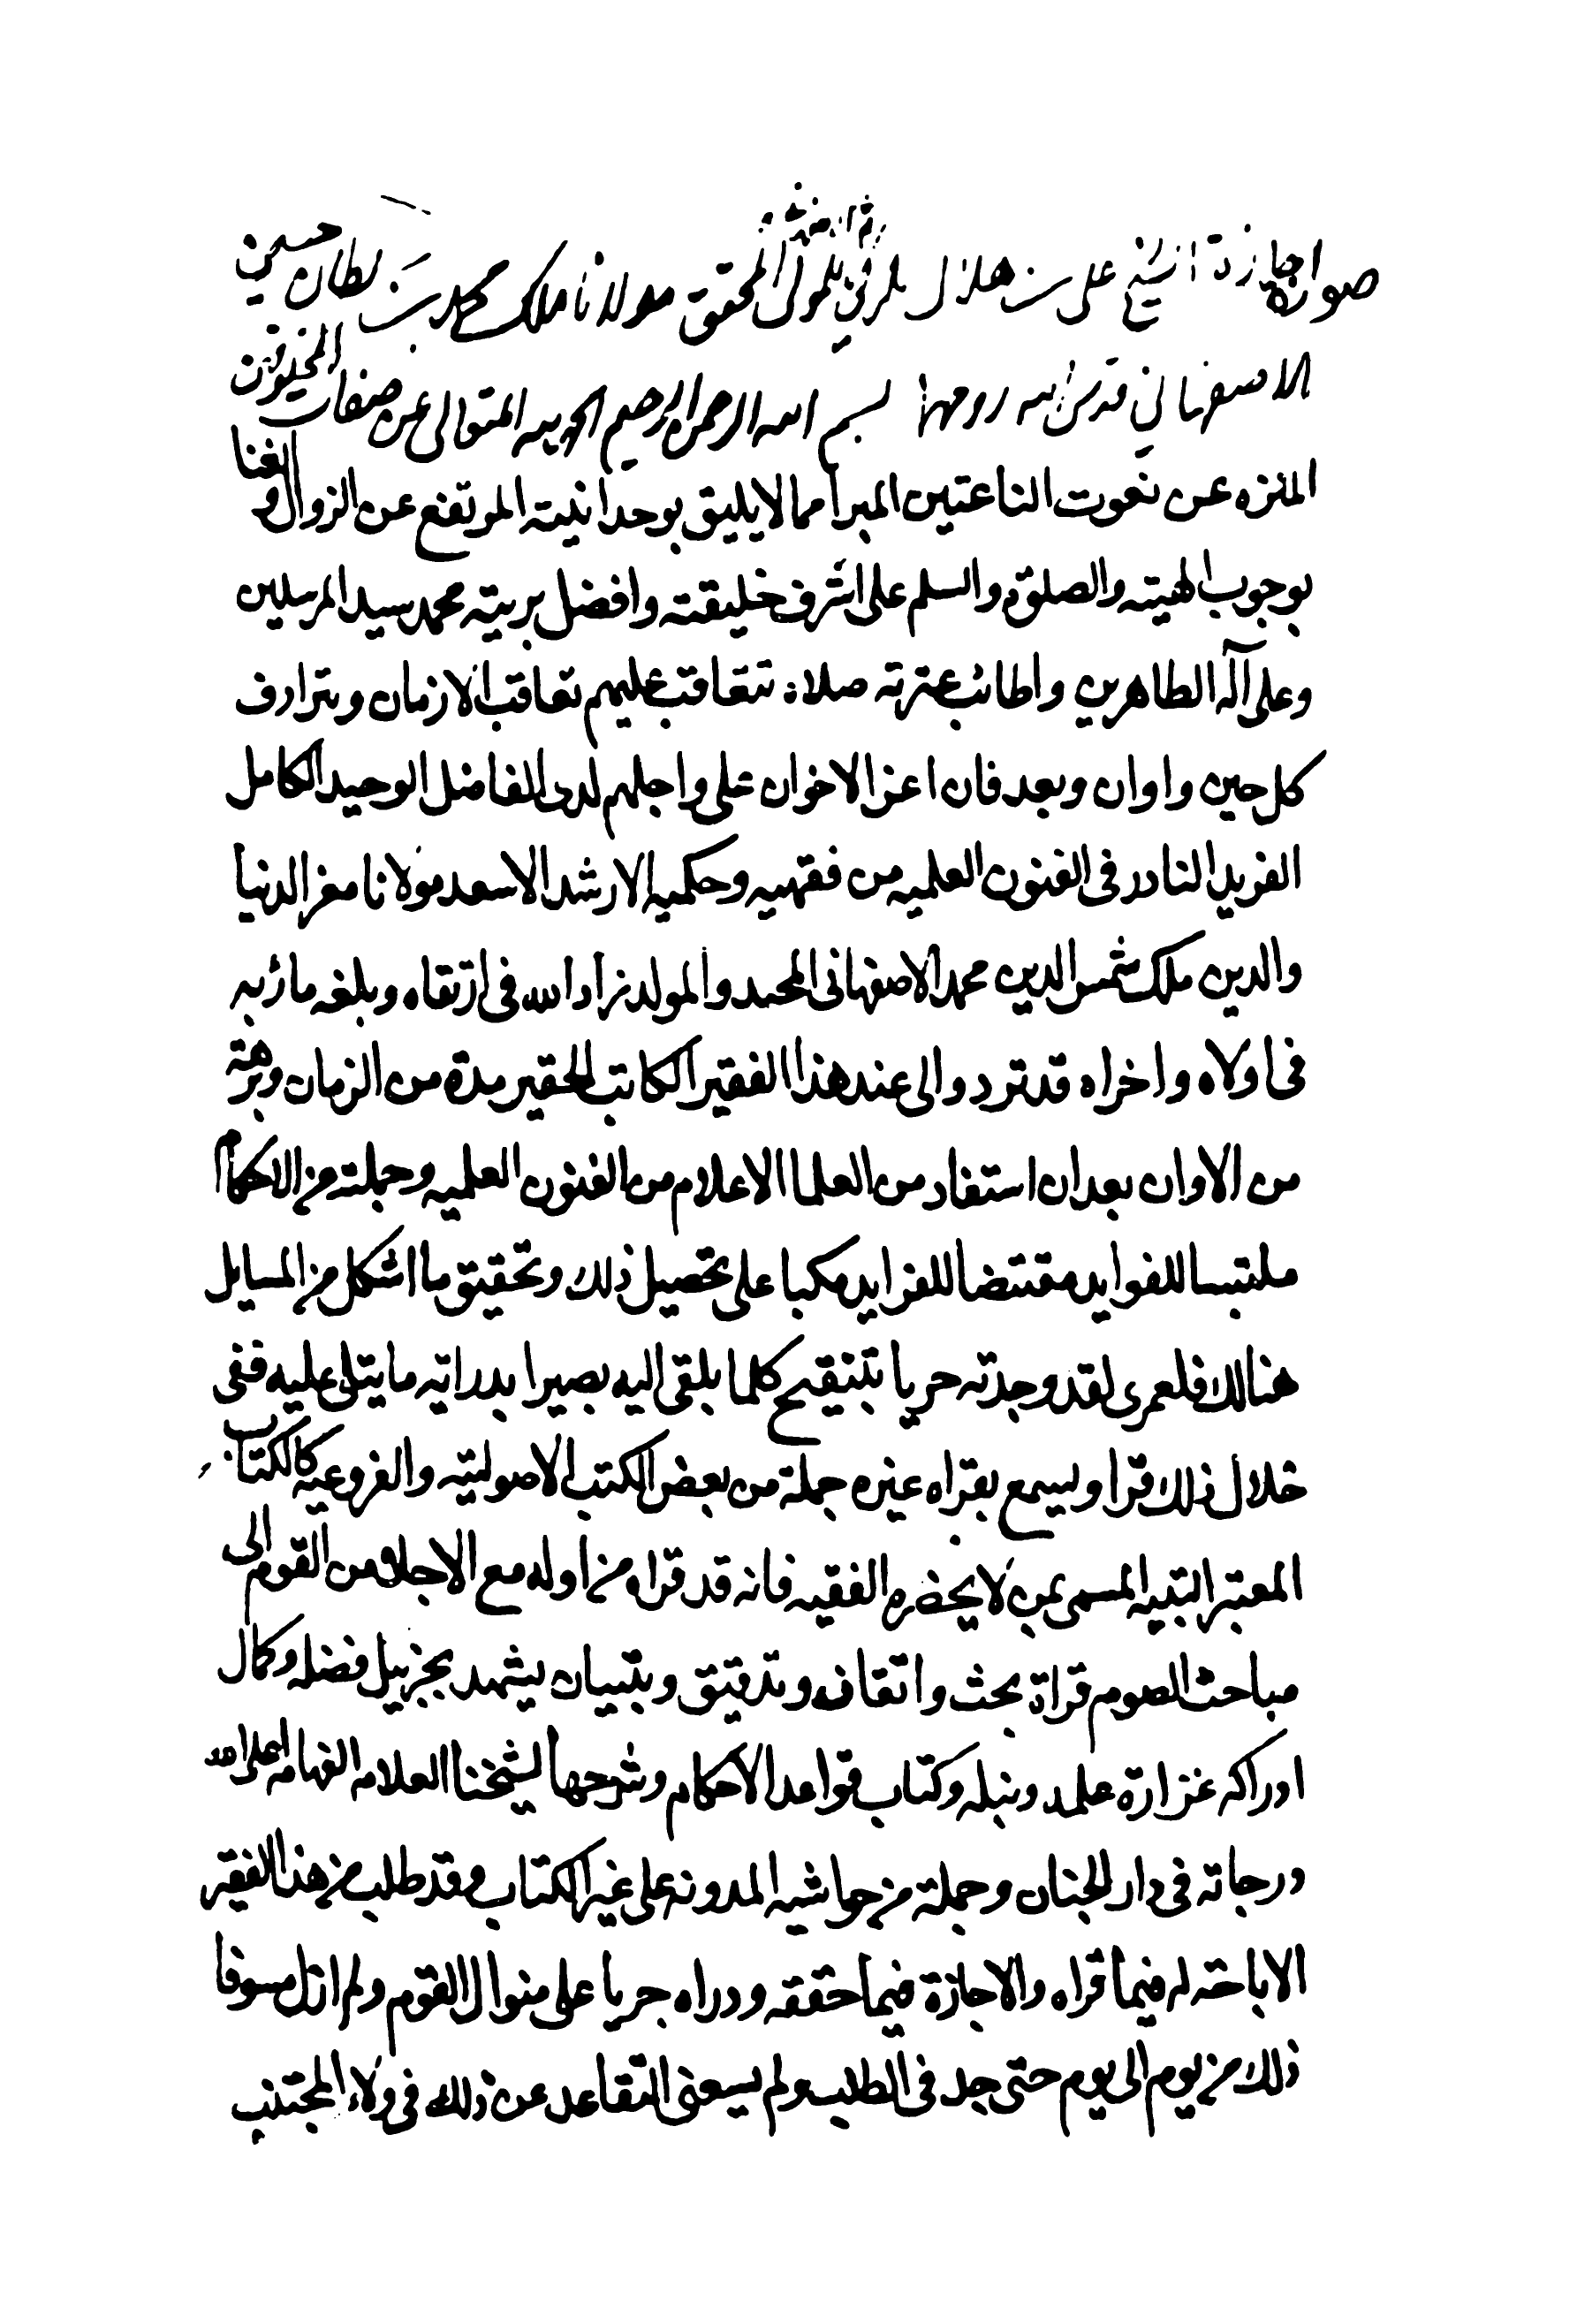 صورة اجازة الشيخ علي بن هلال الكركي للمولى المحقق مولانا ملك محمد بن سلطان حسين
الاصفهاني قدس الله روحهما بسم الله الرحمن الرحيم الحمد لله المتعالى عن صفات المخلوقين
المنزه عن نعوت الناعتين المبرا مما لا يليق بوحدانيته المرتفع عن الزوال والفنا
بوجوب الهيته والصلوة والسلم على اشرف خليقته وافضل بريته محمد سيد المرسلين
وعلى آله الطاهرين واطائب عترته صلاة تتعاقب عليهم تعاقب الازمان وتترادف
كل حين واوان وبعد فان اعز الاخوان على واجلهم لدى الفاضل الوحيد الكامل
الفريد النادر في الفنون العلميه من فقهيه وحكميه الارشد الاسعد مولانا معز الدنيا
والدين ملك شمس الدين محمد الاصفهانى المحتد والمولد زاد الله فى ارتقاه وبلغه ماربه
فى اولاه واخراه قد تردد الى عند هذا الفقير الكاتب الحقير مدة من الزمان وبرهة
من الاوان بعد ان استفاد من العلما الاعلام من الفنون العلميه وجملة من الاحكام
ملتبسا للفوايد مقتنضا للفرايد مكبا على تحصيل ذلك وتحقيق ما اشكل من المسايل
هنالك فلعمرى لقد وجدته حريا بتنقيح كلما يلقى اليه بصيرا بدراية ما يتلى عليه ففى
خلال ذلك قرا وسمع بقراه غيره جملة من بعض الكتب الاصولية والفروعيه كالكتاب
المعتبر النبيه المسمى بمن لا يحضره الفقيه فانه قد قراه من اوله مع الاجلاء من القوم الى
مباحث الصوم قراة بحث واتقان وتدقيق وتبيان يشهد بجزيل فضله وكمال
ادراكه غزارة علمه ونبله وكتاب قواعد الاحكام وشرحها لشيخنا العلامه الفهامه اعلى الله
درجاته فى دار الجنان وجملة من حواشيه المدونه على غير الكتاب وقد طلب من هذا الفقير
الاباحة له فيما قراه والاجازة فيما حققه ودراه جريا على منوال القوم ولم ازل مسوفا
ذلك من يوم الى يوم حتى جد فى الطلب ولم يسعنى التقاعد عن ذلك فى ولاء المجتنب